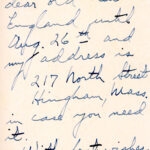 dear old
England until
Aug. 26th and
my address is
217 North Street
Hingham, Mass.
in case you need
it.
With best wishes,